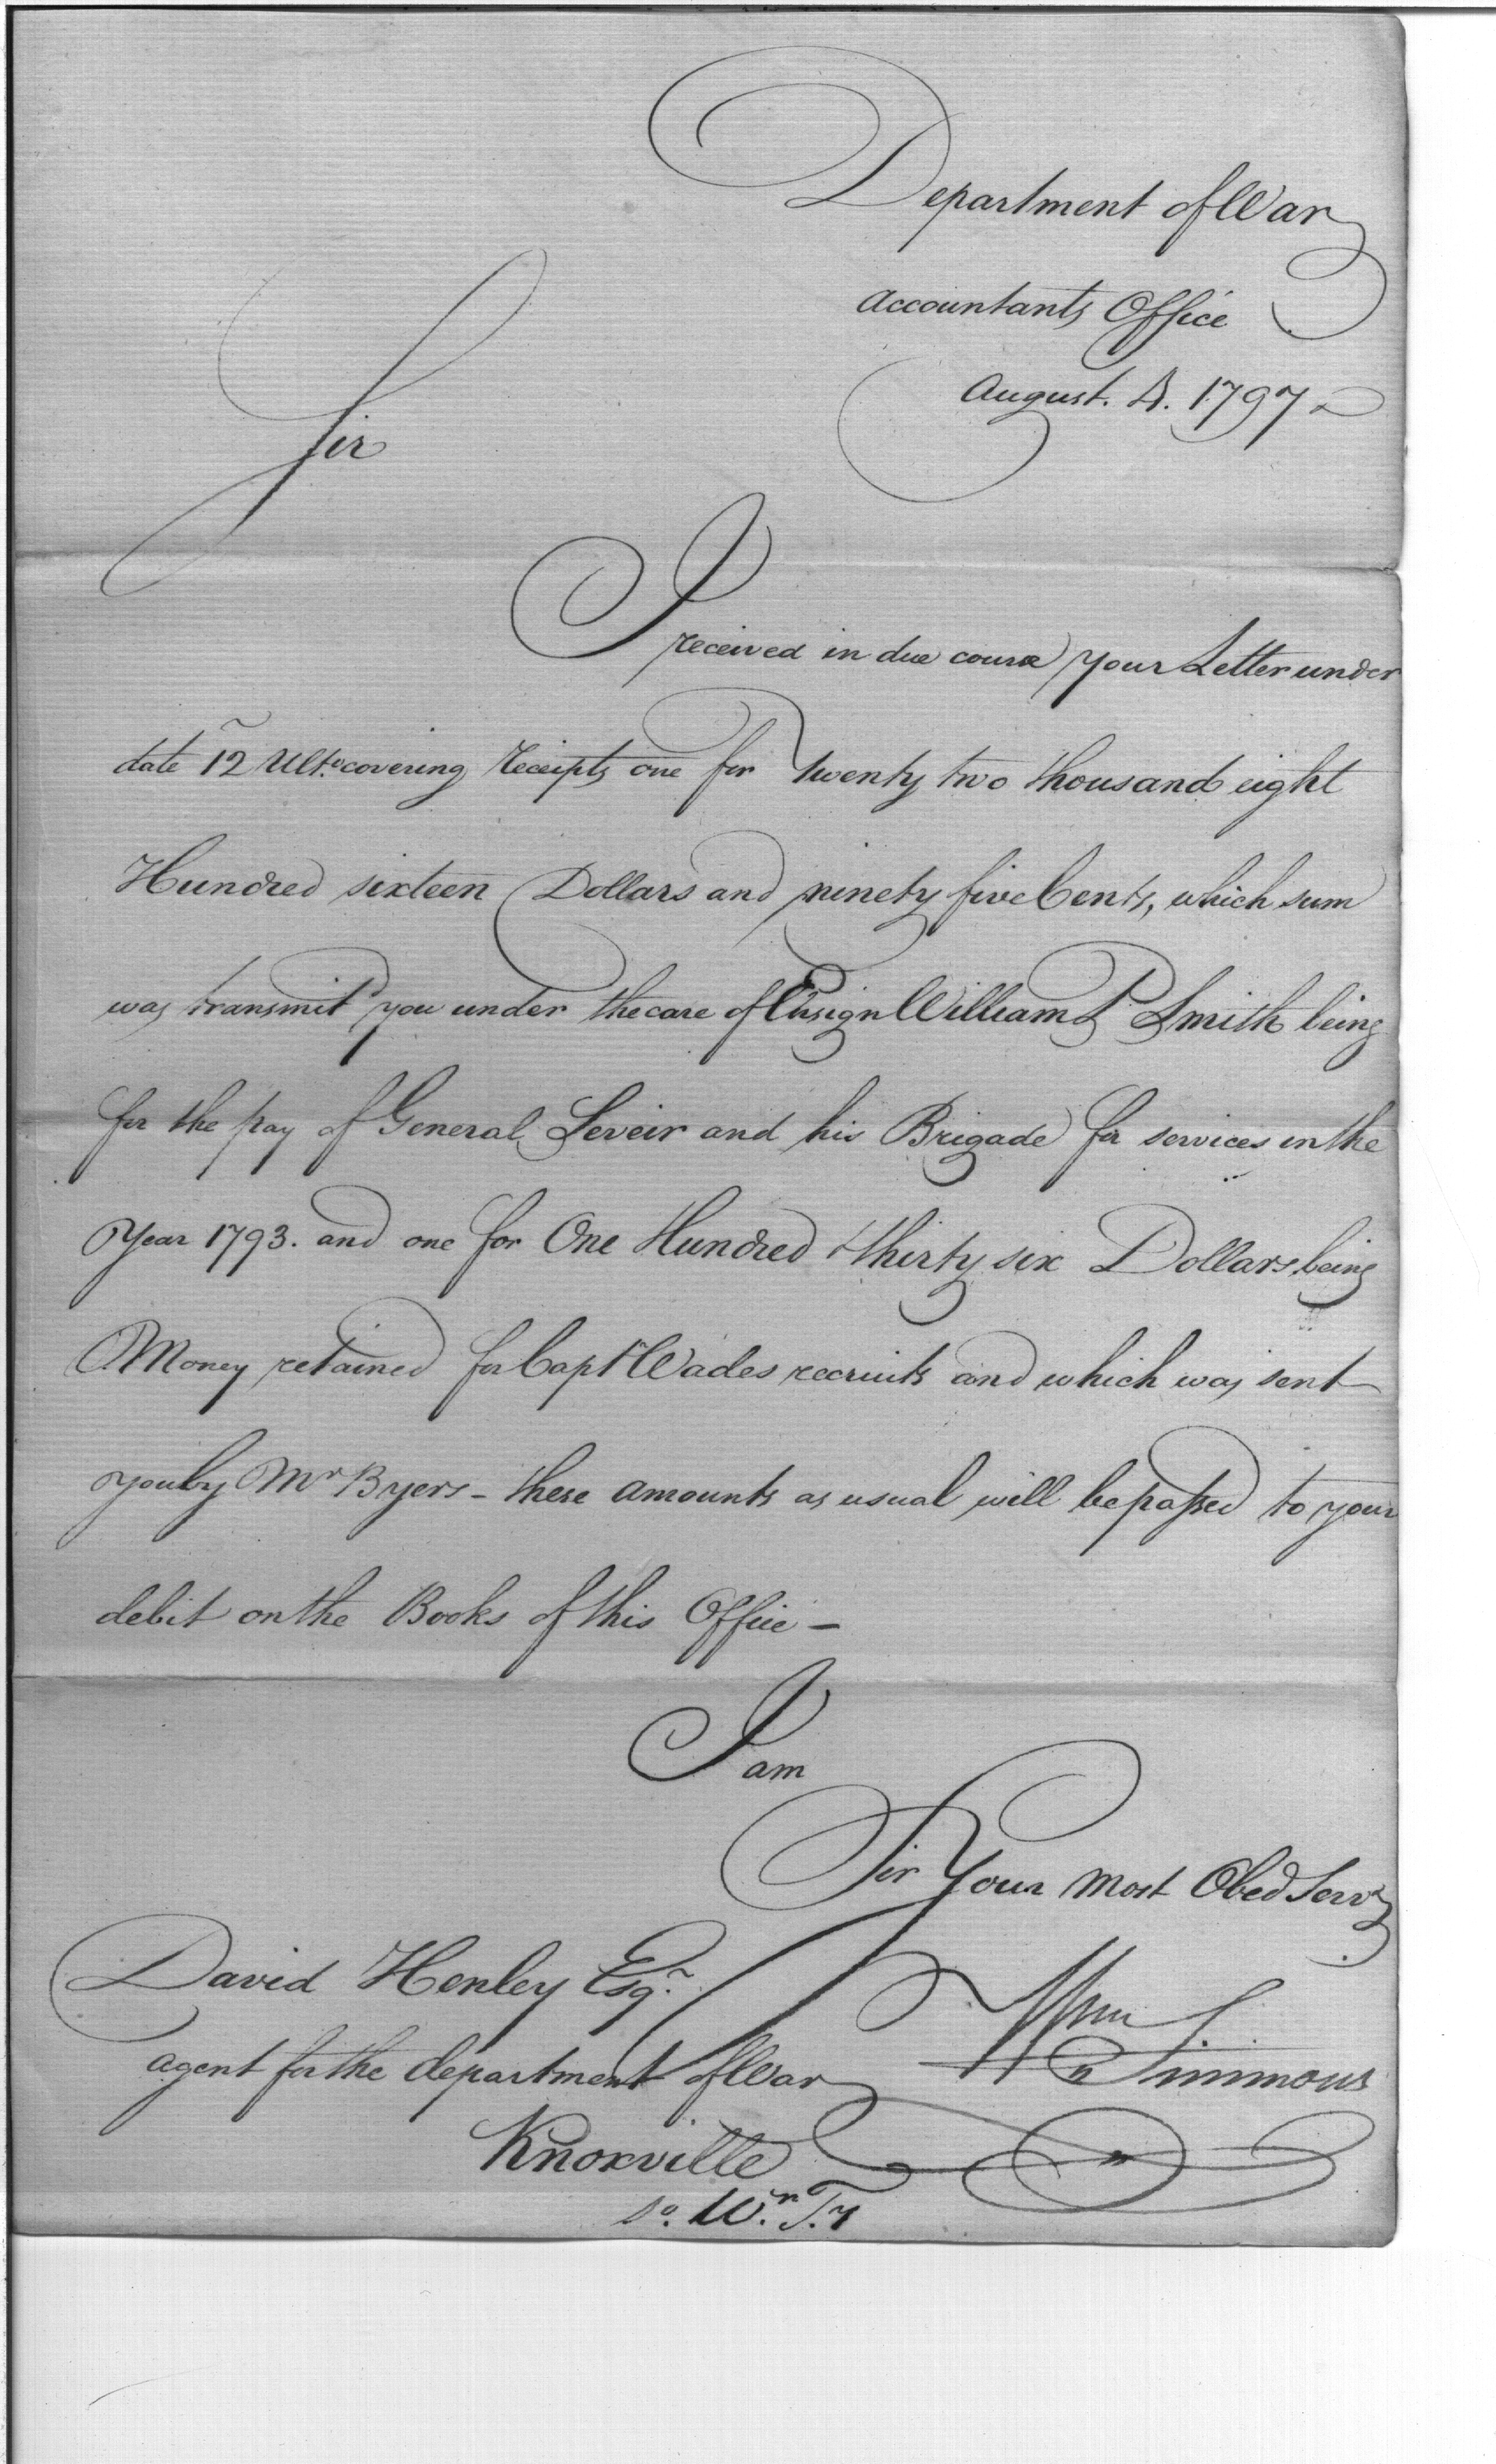 Department of War
Accountants Office
August. 4. 1797
Sir
I received in due course your Letter under
date 12 Ulto. covering receipts one for twenty two thousand eight
Hundred sixteen Dollars and ninety five Cents, which sum
was transmit'd you under the care of Ensign William P Smith being
for the pay of General Seveir and his Brigade for services in the
Year 1793. and one for One Hundred & thirty six Dollars being
Money retained for Capt Wades recruits and which was sent
you by Mr Byers - these amounts as usual will be passed to your
debit on the Books of this Office -
I am
Sir Your most Obed Servt
David Henley Esqr.
Wm Simmons
agent for the department of War
Knoxville
So. Wn. Ty